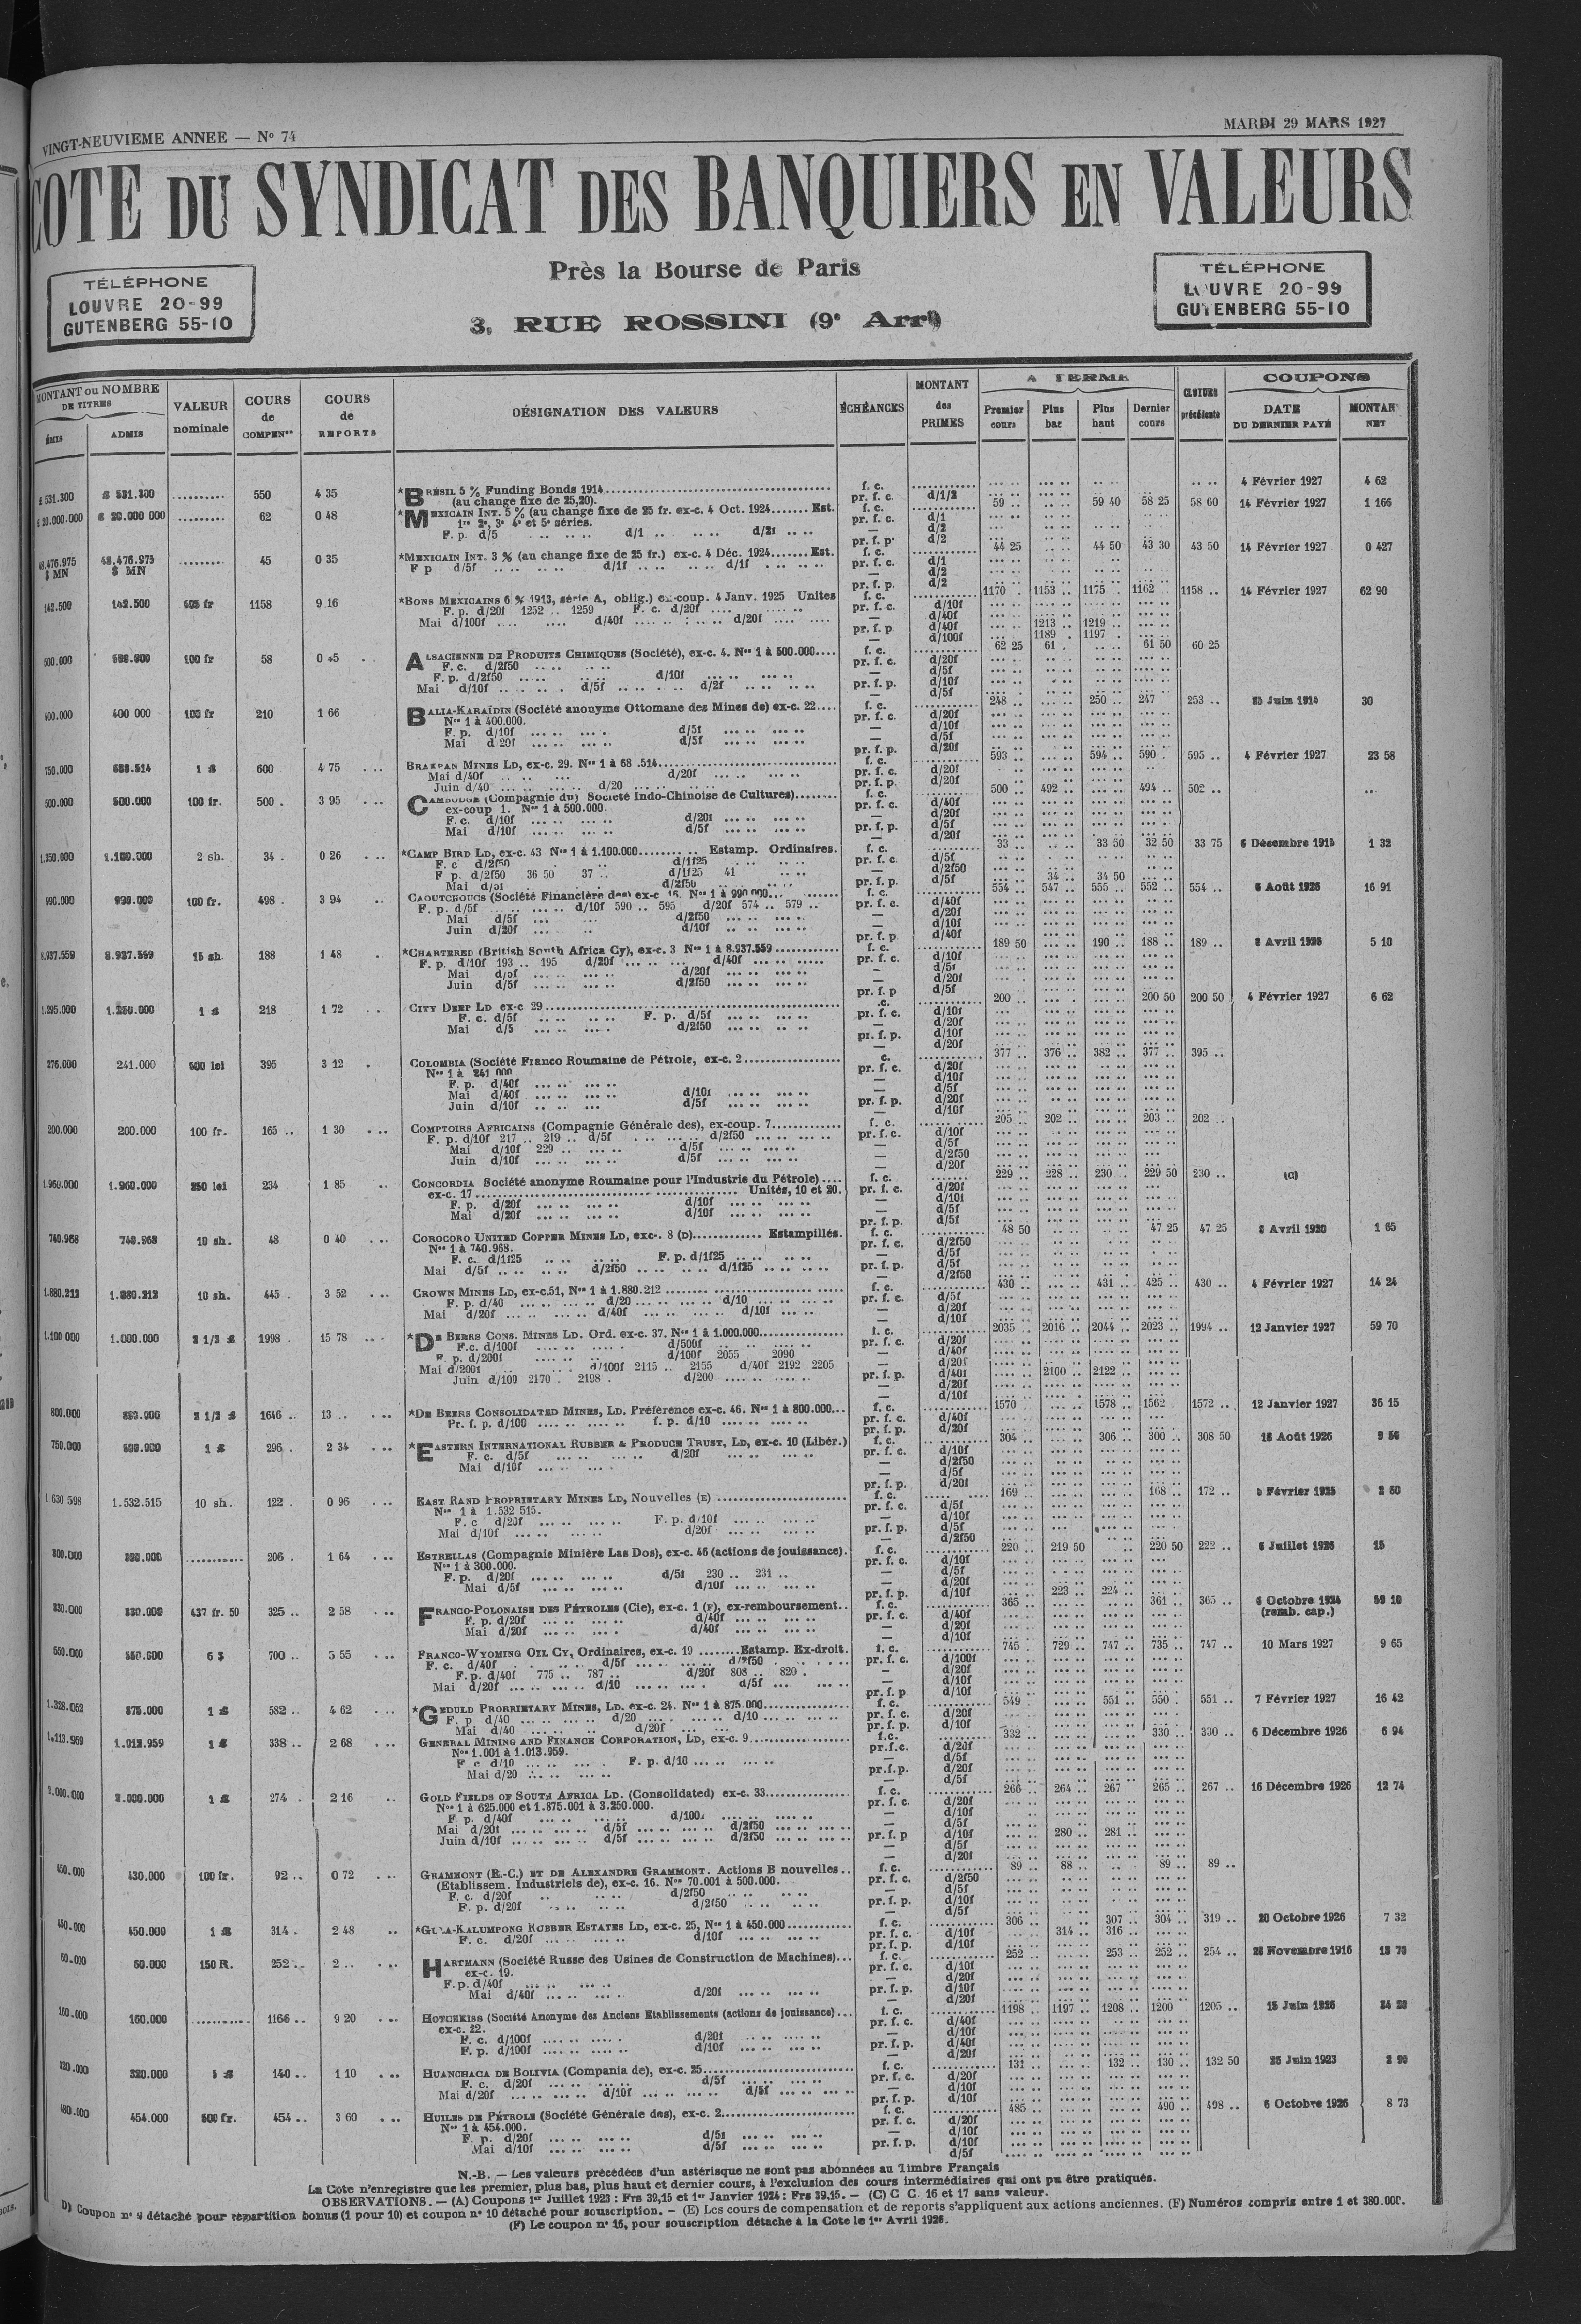 VINGT-NEUVIEME ANNEE — Nº 74
MARDI 29 MARS 1927
COTE DU SYNDICAT DES BANQUIERS EN VALEURS
Près la Bourse de Paris
3, RUE ROSSINI (9e Arrt)
TÉLÉPHONE
LOUVRE 20-99
GUTENBERG 55-10
TÉLÉPHONE
LOUVRE 20-99
GUTENBERG 55-10
MONTANT ou NOMBRE DE TITRES
ÉMIS ADMIS
VALEUR nominale
COURS de COMPENon
COURS de REPORTS
DÉSIGNATION DES VALEURS
ÉCHÉANCES
MONTANT des PRIMES
A TERME
Premier cours Plus bas Plus haut Dernier cours
CLOTURE précédente
COUPONS
DATE DU DERNIER PAYÉ
MONTANT NET
£ 531.300 £ 531.300 .......... 550 4 35 *BRÉSIL 5 % Funding Bonds 1914 f. c. 4 Février 1927 4 62
(au change fixe de 25,20). pr. f. c. d/1/2
£ 20.000.000 £ 20.000 000 ......... 62 0 48 *MEXICAIN INT. 5 % (au change fixe de 25 fr. ex-c. 4 Oct. 1924....... Est. f. c. 59 .. 59 40 58 25 58 60 14 Février 1927 1 166
1re 2e, 3e 4e et 5e séries. pr. f. c. d/1
F. p. d/5 d/1 d/21 — d/2
pr. f. p. d/2
48.476.975 $ MN 48.476.975 $ MN ......... 45 0 35 *MEXICAIN INT. 3 % (au change fixe de 25 fr.) ex-c. 4 Déc. 1924....... Est. f. c. 44 25 44 50 43 30 43 50 14 Février 1927 0 427
F p d/5f d/1f d/1f pr. f. c. d/1
— d/2
pr. f. p. d/2
142.500 142.500 505 fr 1158 9 16 *BONS MEXICAINS 6 % 1913, série A, oblig.) ex-coup. 4 Janv. 1925 Unites f. c. 1170 .. 1153 .. 1175 .. 1162 .. 1158 .. 14 Février 1927 62 90
F. p. d/20f 1252 .. 1259 F. c. d/20f pr. f. c. d/10f
Mai d/100f d/40f d/20f — d/40f
pr. f. p d/40f 1213 .. 1219 ..
— d/100f 1189 . 1197 .
500.000 500.000 100 fr 58 0 45 ALSACIENNE DE PRODUITS CHIMIQUES (Société), ex-c. 4. Nos 1 à 500.000.... f. c. 62 25 61 . 61 50 60 25
F. c. d/2f50 pr. f. c. d/20f
F. p. d/2f50 d/10f — d/5f
Mai d/10f d/5f d/2f pr. f. p. d/10f
— d/5f
400.000 400 000 100 fr 210 1 66 BALIA-KARAÏDIN (Société anonyme Ottomane des Mines de) ex-c. 22.... f. c. 248 .. 250 .. 247 253 .. 30
Nos 1 à 400.000. pr. f. c. d/20f
F. p. d/10f d/5f — d/10f
Mai d 20f d/5f — d/5f
pr. f. p. d/20f
750.000 1 £ 600 4 75 BRAKPAN MINES LD, ex-c. 29. f. c. 593 .. 594 .. 590 . 595 .. 4 Février 1927 23 58
Mai d/40f d/20f pr. f. c. d/20f
Juin d/40 d/20 pr. f. p. d/20f
500.000 500.000 100 fr. 500 . 3 95 CAMBODGE (Compagnie du) Société Indo-Chinoise de Cultures)........ f. c. 500 .. 492 .. 494 .. 502 ..
ex-coup 1. Nos 1 à 500.000. pr. f. c. d/40f
F. c. d/10f d/20f — d/20f
Mai d/10f d/5f pr. f. p. d/5f
— d/20f
1.350.000 1.100.000 2 sh. 34 . 0 26 *CAMP BIRD LD, ex-c. 43 Nos 1 à 1.100.000........ Estamp. Ordinaires. f. c. 33 .. 33 50 32 50 33 75 1 32
F. c d/2f50 d/1f25 pr. f. c. d/5f
F. p. d/2f50 36 50 37 .. d/1f25 41 — d/2f50
Mai d/5f d/2f50 pr. f. p. d/5f 34 .. 34 50
990.000 990.000 100 fr. 498 . 3 94 CAOUTCHOUCS (Société Financière des) ex-c 16. Nos 1 à 990 000... f. c. 554 .. 547 .. 555 .. 552 .. 554 .. 5 Août 1926 16 91
F. p. d/5f d/10f 590 .. 595 d/20f 574 .. 579 .. pr. f. c. d/40f
Mai d/5f d/2f50 — d/20f
Juin d/20f d/10f — d/10f
pr. f. p d/40f
8.937.559 8.937.559 15 sh. 188 1 48 *CHARTERED (British South Africa Cy), ex-c. 3 Nos 1 à 8.937.559 f. c. 189 50 190 .. 188 .. 189 .. 5 10
F. p. d/10f 193 .. 195 d/20f d/40f pr. f. c. d/10f
Mai d/5f d/20f — d/5f
Juin d/5f d/2f50 — d/20f
pr. f. p d/5f
1.295.000 1.250.000 1 £ 218 1 72 CITY DEEP LD ex-c 29 .c. 200 .. 200 50 200 50 4 Février 1927 6 62
F. c. d/5f F. p. d/5f pr. f. c. d/10f
Mai d/5 d/2f50 — d/20f
pr. f. p. d/10f
— d/20f
276.000 241.000 500 lei 395 3 12 COLOMBIA (Société Franco Roumaine de Pétrole, ex-c. 2 c. 377 .. 376 .. 382 .. 377 .. 395 ..
Nos 1 à 241 000 pr. f. c. d/20f
F. p. d/40f — d/10f
Mai d/40f d/10f — d/5f
Juin d/10f d/5f pr. f. p. d/20f
— d/10f
200.000 200.000 100 fr. 165 .. 1 30 COMPTOIRS AFRICAINS (Compagnie Générale des), ex-coup. 7 f. c. 205 .. 202 .. 203 .. 202 ..
F. p. d/10f 217 .. 219 .. d/5f d/2f50 pr. f. c. d/10f
Mai d/10f 229 .. d/5f — d/5f
Juin d/10f d/5f — d/2f50
— d/20f
1.960.000 1.960.000 250 lei 234 1 85 CONCORDIA Société anonyme Roumaine pour l'Industrie du Pétrole) f. c. 229 .. 228 .. 230 .. 229 50 230 ..
ex-c. 17 Unités, 10 et 20. pr. f. c. d/20f
F. p. d/20f d/10f — d/10f
Mai d/20f d/10f — d/5f
pr. f. p. d/5f
740.968 740.968 10 sh. 48 0 40 COROCORO UNITED COPPER MINES LD, exc-. 8 (D) Estampillés. f. c. 48 50 47 25 47 25 1 65
Nos 1 à 740.968. pr. f. c. d/2f50
F. c. d/1f25 F. p. d/1f25 — d/5f
Mai d/5f d/2f50 d/1f25 pr. f. p. d/5f
— d/2f50
1.880.212 1.880.212 10 sh. 445 . 3 52 CROWN MINES LD, ex-c.51, Nos 1 à 1.880.212 f. c. 430 .. 431 .. 425 .. 430 .. 4 Février 1927 14 24
F. p. d/40 d/20 d/10 pr. f. c. d/5f
Mai d/20f d/40f d/10f — d/20f
— d/10f
1.100 000 1.000.000 2 1/2 £ 1998 . 15 78 *DE BEERS CONS. MINES LD. Ord. ex-c. 37. Nos 1 à 1.000.000 f. c. 2035 .. 2016 .. 2044 .. 2023 .. 1994 .. 12 Janvier 1927 59 70
F.c. d/100f d/500f pr. f. c. d/20f
F. p. d/200f d/100f 2055 2090 — d/40f
Mai d/200f d/100f 2115 .. 2155 d/40f 2192 2205 — d/20f
Juin d/100 2170 . 2198 . d/200 pr. f. p. d/40f 2100 .. 2122 ..
— d/20f
— d/10f
800.000 2 1/2 £ 1646 .. 13 .. *DE BEERS CONSOLIDATED MINES, LD. Préférence ex-c. 46. Nos 1 à 800.000... f. c. 1570 1578 .. 1562 . 1572 .. 12 Janvier 1927 36 15
Pr. f. p. d/100 f. p. d/10 pr. f. c. d/40f
pr. f. p. d/20f
750.000 1 £ 296 . 2 34 *EASTERN INTERNATIONAL RUBBER & PRODUCE TRUST, LD, ex-c. 10 (Libér.) f. c. 304 .. 306 .. 300 .. 308 50
F. c. d/5f d/20f pr. f. c. d/10f
Mai d/10f — d/2f50
— d/5f
pr. f. p. d/20f
1 630 598 1.532.515 10 sh. 122 . 0 96 EAST RAND PROPRIETARY MINES LD, Nouvelles (E) f. c. 169 168 .. 172 .. 2 60
Nos 1 à 1.532 515. pr. f. c. d/5f
F. c d/20f F. p. d/10f — d/10f
Mai d/10f d/20f pr. f. p. d/5f
— d/2f50
300.000 300.000 206 . 1 64 ESTRELLAS (Compagnie Minière Las Dos), ex-c. 46 (actions de jouissance). f. c. 220 .. 219 50 220 50 222 .. 15
Nos 1 à 300.000. pr. f. c. d/10f
F. p. d/20f d/5f 230 .. 231 .. — d/5f
Mai d/5f d/10f — d/20f
pr. f. p. d/10f 223 .. 224 ..
330.000 330.000 437 fr. 50 325 .. 2 58 FRANCO-POLONAISE DES PÉTROLES (Cie), ex-c. 1 (F), ex-remboursement.. f. c. 365 .. 361 .. 365 .. 6 Octobre 1924 59 10
F. p. d/20f d/40f pr. f. c. d/40f (remb. cap.)
Mai d/20f d/40f — d/20f
— d/10f
550.000 550.000 6 $ 700 .. 5 55 FRANCO-WYOMING OIL CY, Ordinaires, ex-c. 19 ........Estamp. Ex-droit. f. c. 745 729 .. 747 .. 735 .. 747 .. 10 Mars 1927 9 65
F. c. d/40f d/5f d/2f50 pr. f. c. d/100f
F. p. d/40f 775 .. 787 .. d/20f 808 .. 820 . — d/20f
Mai d/20f d/10 d/5f — d/10f
pr. f. p d/10f
1.328.052 875.000 1 £ 582 .. 4 62 *GEDULD PROPRIETARY MINES, LD, ex-c. 24. Nos 1 à 875.000 f. c. 549 . 551 .. 550 . 551 .. 7 Février 1927 16 42
F. p d/40 d/20 d/10 pr. f. c. d/20f
Mai d/40 d/20f pr. f. p. d/10f
1.113.959 1.013.959 1 £ 338 .. 2 68 GENERAL MINING AND FINANCE CORPORATION, LD, ex-c. 9 f.c. 332 .. 330 .. 330 .. 6 Décembre 1926 6 94
Nos 1.001 à 1.013.959. pr.f.c. d/20f
F. c d/10 F. p. d/10 — d/5f
Mai d/20 pr.f.p. d/20f
— d/5f
2.000.000 2.000.000 1 £ 274 . 2 16 GOLD FIELDS OF SOUTH AFRICA LD. (Consolidated) ex-c. 33 f. c. 266 .. 264 .. 267 265 .. 267 .. 16 Décembre 1926 12 74
Nos 1 à 625.000 et 1.875.001 à 3.250.000. pr. f. c. d/20f
F. p. d/40f d/100f — d/10f
Mai d/20f d/5f d/2f50 — d/5f
Juin d/10f d/5f d/2f50 pr. f. p d/10f 280 .. 281 ..
— d/5f
— d/20f
430.000 100 fr. 92 .. 0 72 GRAMMONT (E.-C.) ET DE ALEXANDRE GRAMMONT. Actions B nouvelles.. f. c. 89 .. 88 .. 89 .. 89 ..
(Etablissem. Industriels de), ex-c. 16. Nos 70.001 à 500.000. pr. f. c. d/2f50
F. c. d/20f d/2f50 — d/5f
F. p. d/20f d/2f50 pr. f. p. d/10f
— d/5f
450.000 450.000 1 £ 314 . 2 48 *GULA-KALUMPONG RUBBER ESTATES LD, ex-c. 25, Nos 1 à 450.000 f. c. 306 .. 307 .. 304 .. 319 .. 20 Octobre 1926 7 32
F. c. d/20f d/10f pr. f. c. d/10f 314 .. 316 ..
pr. f. p. d/10f
60.000 60.000 150 R. 252 .. 2 .. HARTMANN (Société Russe des Usines de Construction de Machines)... f. c. 252 .. 253 .. 252 .. 254 .. 28 Novembre 1916
ex-c. 19. pr. f. c. d/10f
F. p. d/40f — d/20f
Mai d/40f d/20f pr. f. p. d/10f
— d/20f
160.000 160.000 1166 .. 9 20 HOTCHKISS (Société Anonyme des Anciens Etablissements (actions de jouissance)... f. c. 1198 .. 1197 .. 1208 .. 1200 1205 .. 15 Juin 1926
ex-c. 22. pr. f. c. d/40f
F. c. d/100f d/20f — d/10f
F. p. d/100f d/10f pr. f. p. d/40f
— d/20f
320.000 320.000 140 .. 1 10 HUANCHACA DE BOLIVIA (Compania de), ex-c. 25 f. c. 131 .. 132 .. 130 .. 132 50 25 Juin 1923
F. c. d/20f d/5f pr. f. c. d/20f
Mai d/20f d/10f d/5f — d/10f
pr. f. p. d/10f
480.000 454.000 500 fr. 454 .. 3 60 HUILES DE PÉTROLE (Société Générale des), ex-c. 2 f. c. 485 .. 490 .. 498 .. 6 Octobre 1926 8 73
Nos 1 à 454.000. pr. f. c. d/20f
F. p. d/20f d/5f — d/10f
Mai d/10f d/5f pr. f. p. d/10f
— d/5f
N.-B. — Les valeurs précédées d'un astérisque ne sont pas abonnées au Timbre Français
La Cote n'enregistre que les premier, plus bas, plus haut et dernier cours, à l'exclusion des cours intermédiaires qui ont pu être pratiqués.
OBSERVATIONS. — (A) Coupons 1er Juillet 1923 : Frs 39,15 et 1er Janvier 1924 : Frs 39,15. — (C) C C. 16 et 17 sans valeur.
D) Coupon nº 9 détaché pour répartition bonus (1 pour 10) et coupon nº 10 détaché pour souscription. — (E) Les cours de compensation et de reports s'appliquent aux actions anciennes. (F) Numéros compris entre 1 et 380.000.
(F) Le coupon nº 16, pour souscription détaché à la Cote le 1er Avril 1926.